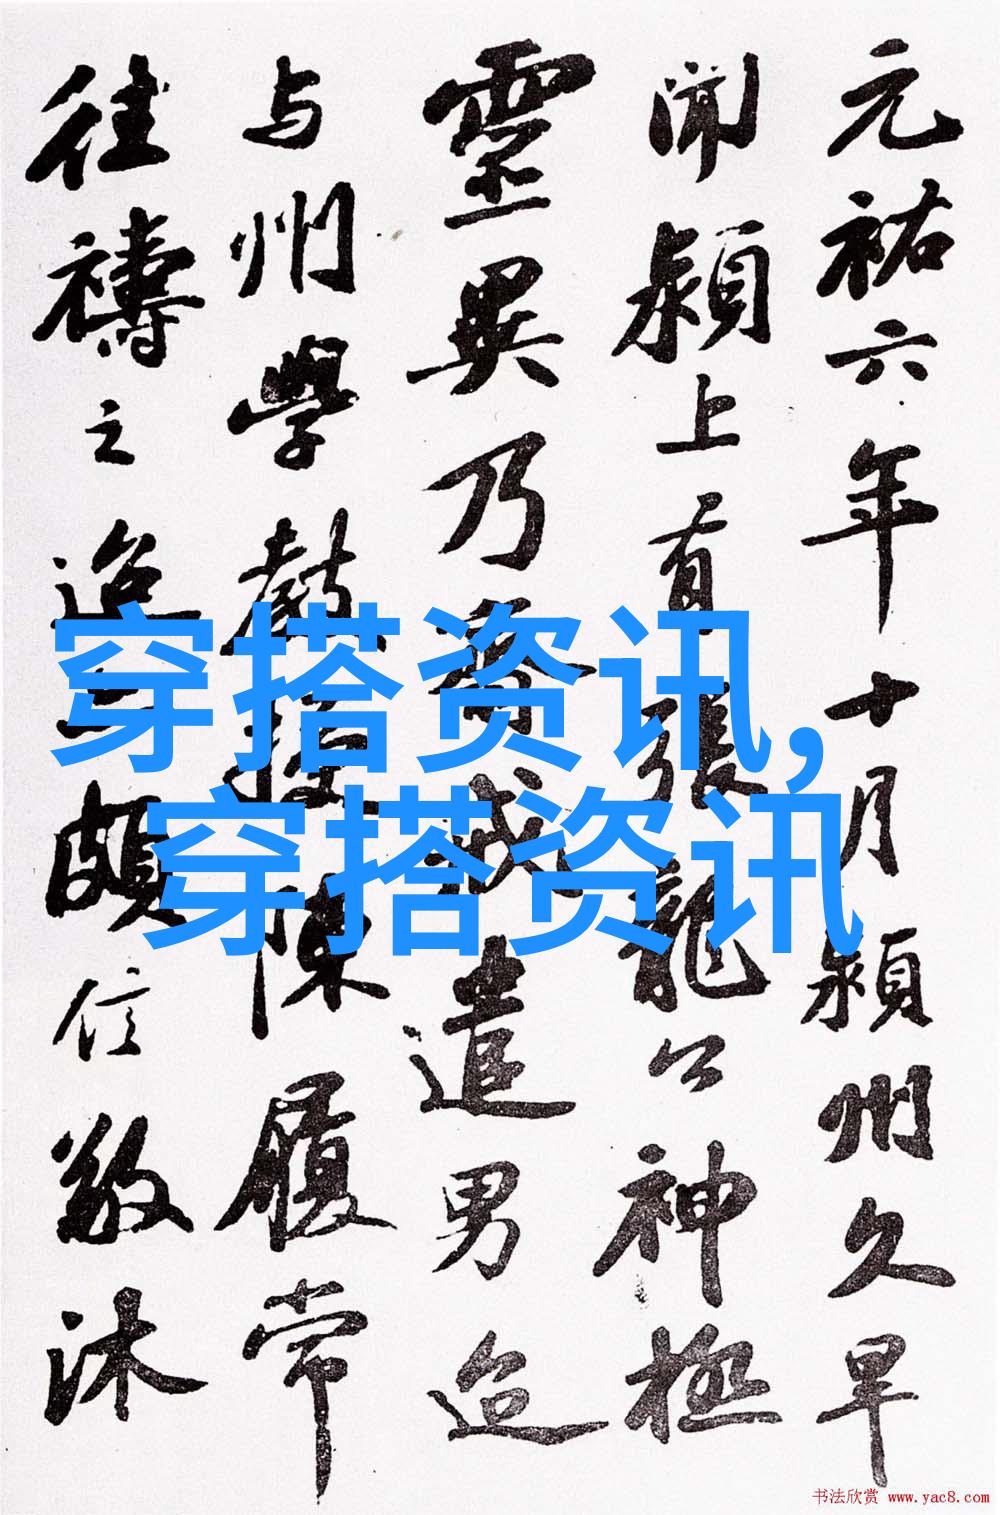 元祐六年十月颍州久旱
闻颍上有張龍公神極
靈異乃齋戒遣男迨
与州學教授陳履常
往禱之迨亦頗信敬沐
穿搭资讯,
穿搭资讯
书法欣赏 www.yac8.com